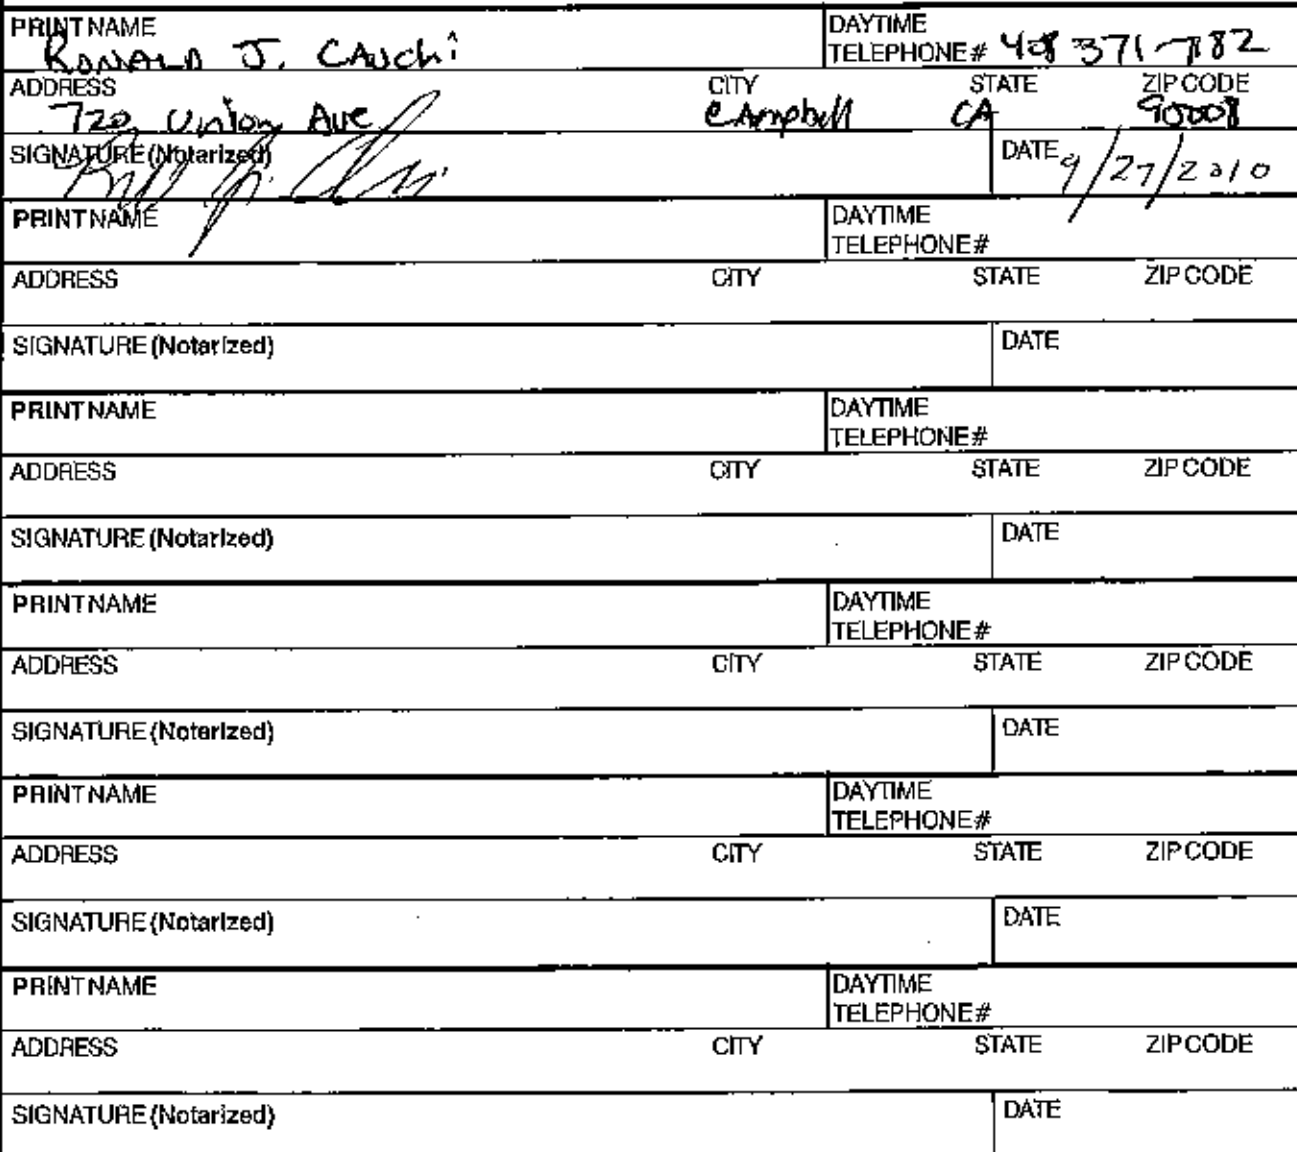 PRINT NAME RONALD J. CAUCHI DAYTIME
TELEPHONE # 408 371-7882
ADDRESS CITY STATE ZIP CODE
720 Union Ave Campbell CA
SIGNATURE (Notarized) DATE 9/27/2010
PRINT NAME DAYTIME
TELEPHONE #
ADDRESS CITY STATE ZIP CODE
SIGNATURE (Notarized) DATE
PRINT NAME DAYTIME
TELEPHONE #
ADDRESS CITY STATE ZIP CODE
SIGNATURE (Notarized) DATE
PRINT NAME DAYTIME
TELEPHONE #
ADDRESS CITY STATE ZIP CODE
SIGNATURE (Notarized) DATE
PRINT NAME DAYTIME
TELEPHONE #
ADDRESS CITY STATE ZIP CODE
SIGNATURE (Notarized) DATE
PRINT NAME DAYTIME
TELEPHONE #
ADDRESS CITY STATE ZIP CODE
SIGNATURE (Notarized) DATE